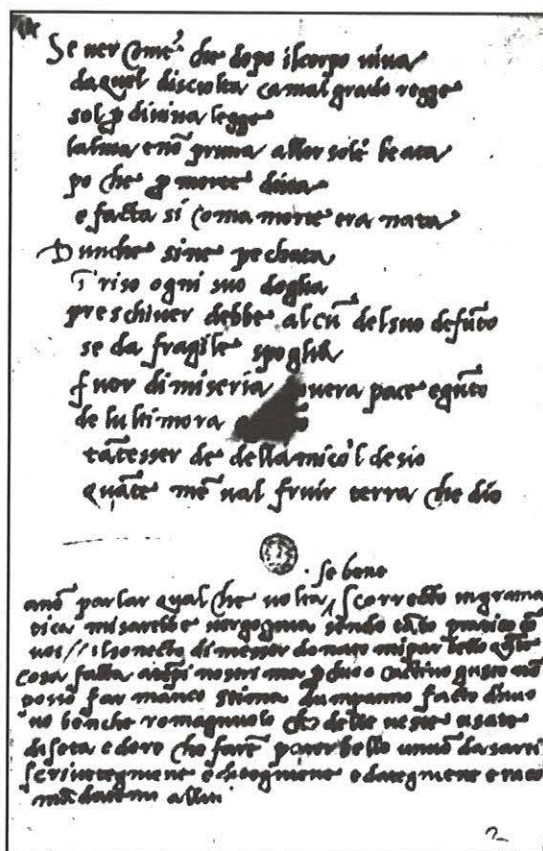 Se uer com'è che dopo il corpo uiua
da quel disciolta ca mal grado regge
sol p diuina legge
lalma e nō prima allor sol è beata
po che p morte diua
e facta si coma morte era nata
Dunche sine pechata
ī riso ogni suo doglia
preschiuer debbe alcū del suo defūto
se da fragile spoglia
fuor di miseria uera pace egūto
de lultimora
tātesser de dellamico'l desio
quāte mē ual fruir terra che dio
se bene
anō parlar qualche uolta scorrecto ingrama
tica misarebbe uergognia sendo tāto pratico cō
uoi // il sonecto di messer donato mi par bello quāte
cosa facta a tēpi nostri ma chio o cactiuo gusto nō
posso far manco stima dunpanno facto dinuo
uo benche romagniuolo che delle ueste usate
diseta e doro che farē parer bello unuō da sarti
scriuetegniene e ditegniene e dategniene e raco
mādatemi allui
2